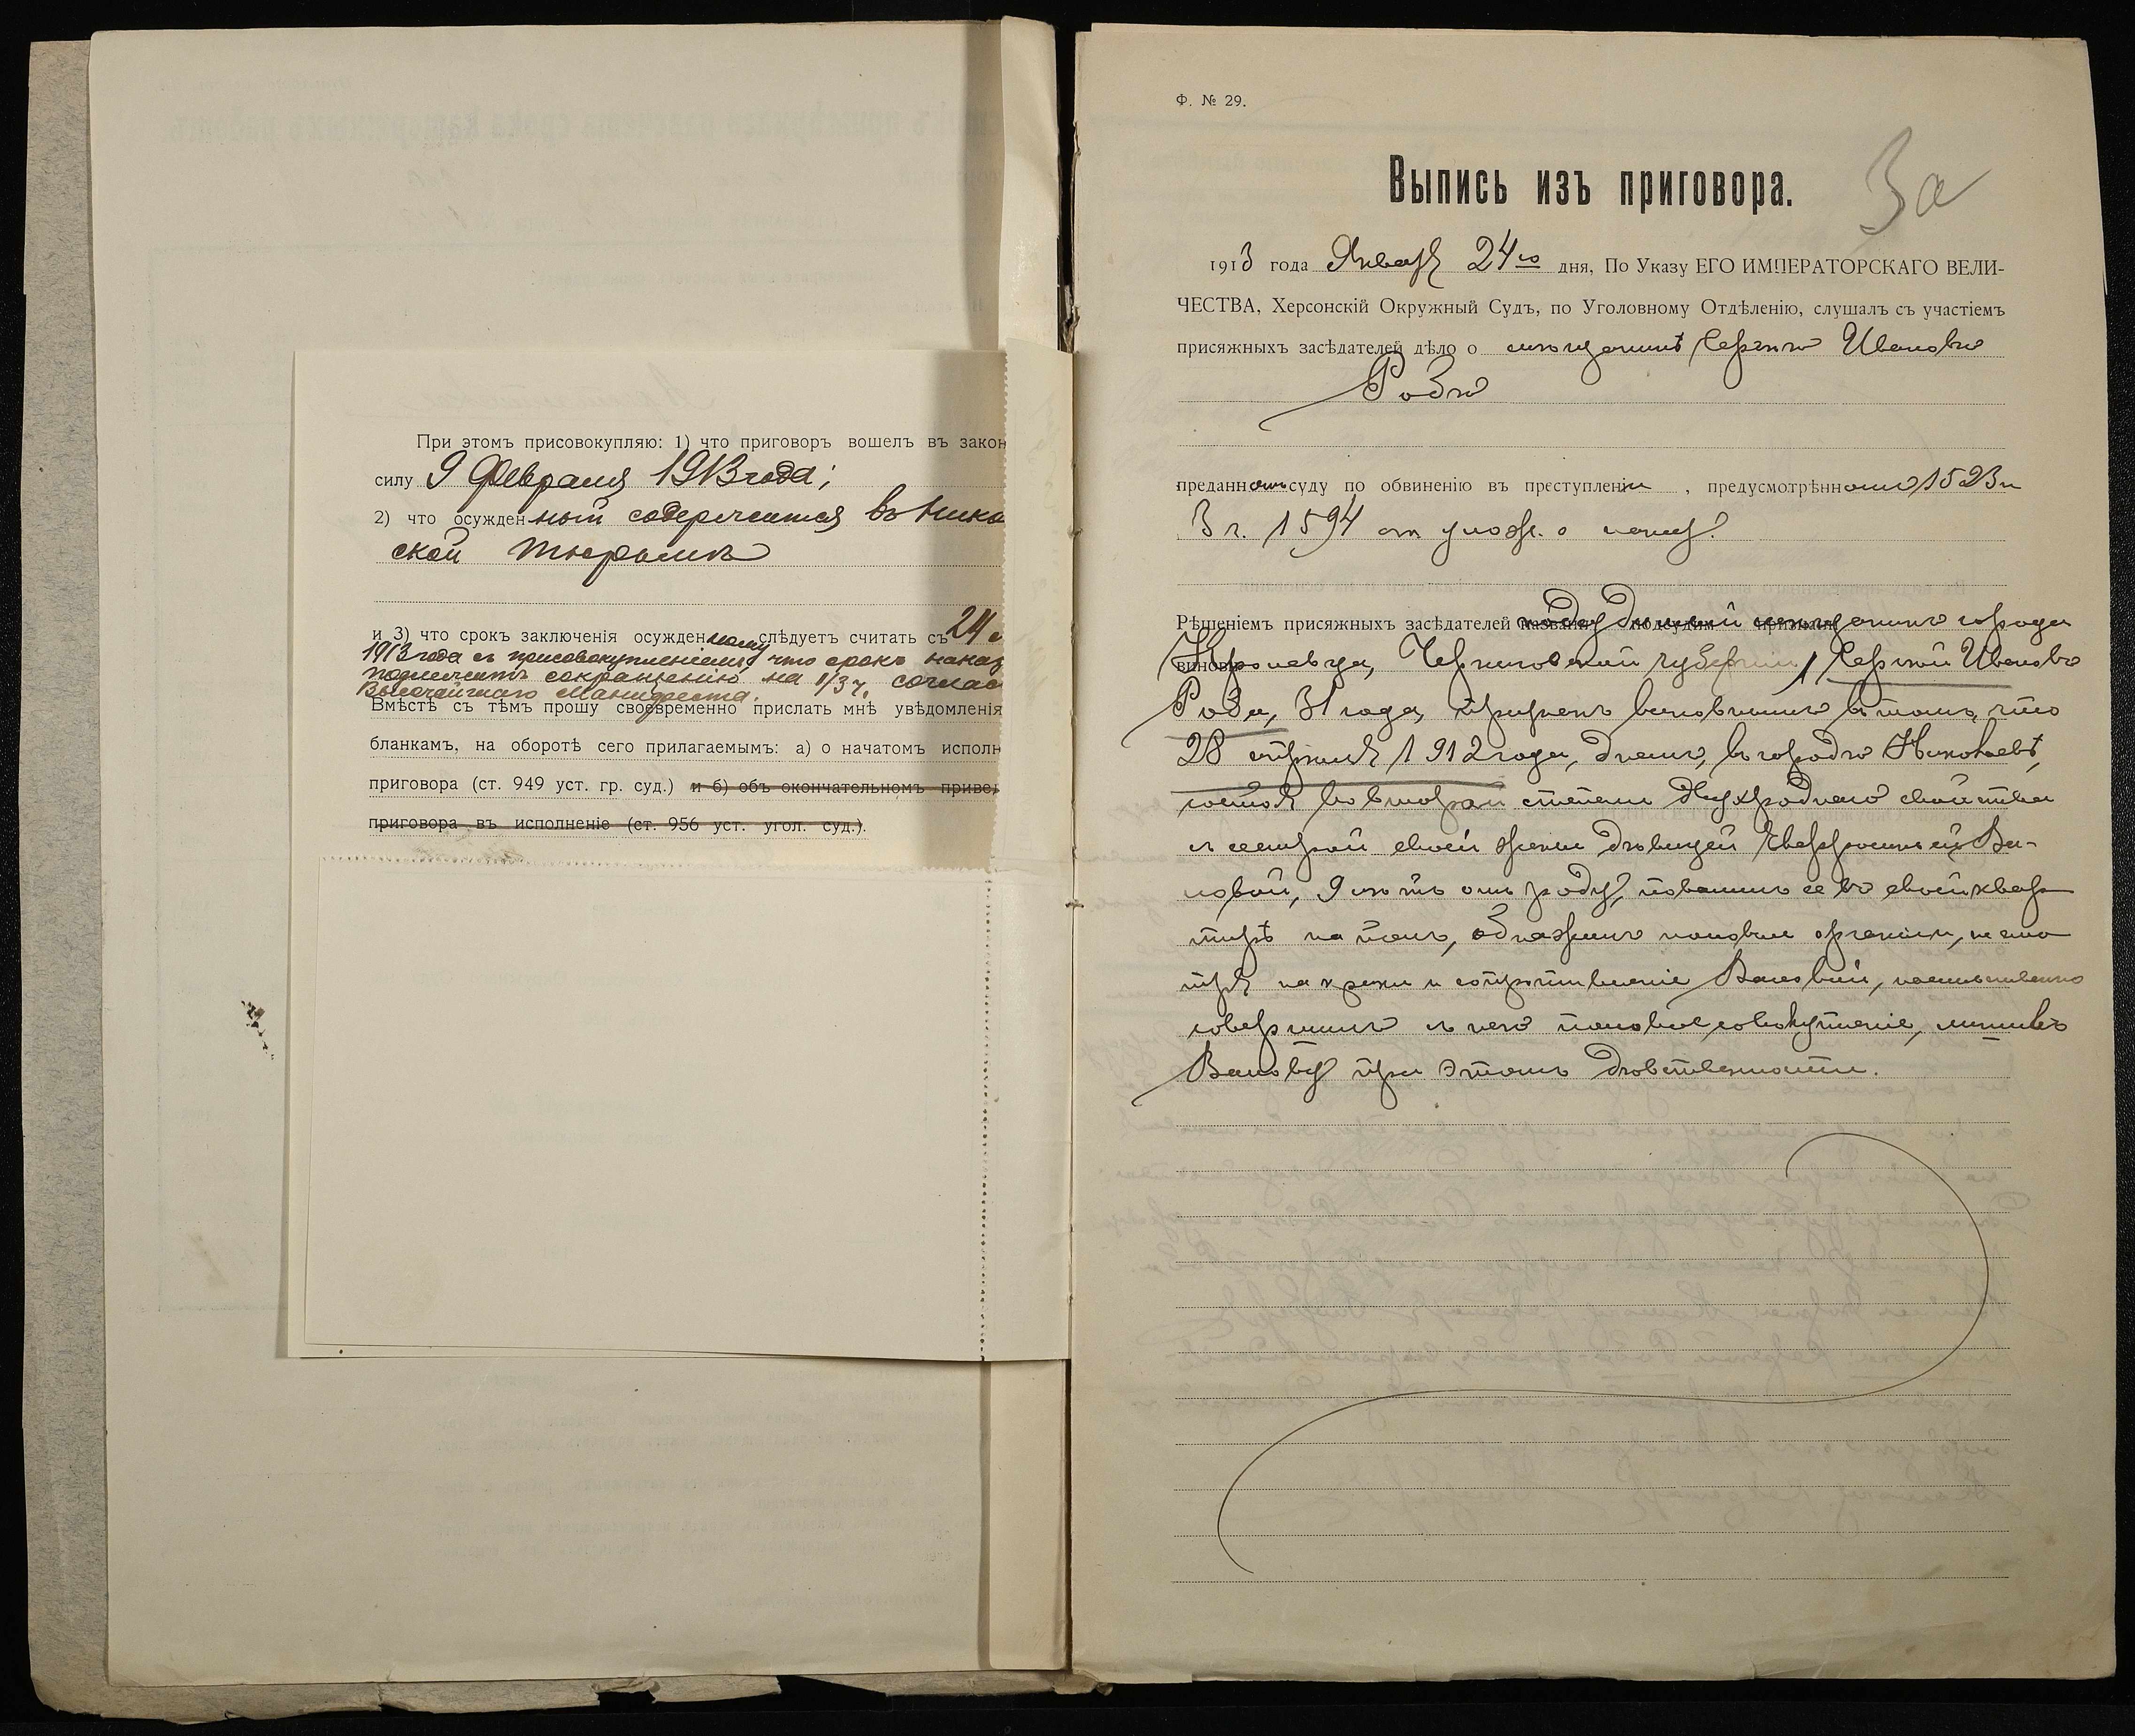 При этомъ присовокупляю: 1) что приговоръ вошелъ въ закон
силу 9 Февраля 1913 года;
2) что осужденный содержится въ Нико
ской тюрьмѣ
и 3) что срокъ заключенія осужденному слѣдуетъ считать съ 24
1913 года съ присовокупленіемъ, что срокъ наказ
подлежитъ сокращенію на 1/3 ч. соглас
Высочайшаго Манифеста.
Вмѣстѣ съ тѣмъ прошу своевременно прислать мнѣ увѣдомленія
бланкамъ, на оборотѣ сего прилагаемымъ: а) о начатомъ исполн
приговора (ст. 949 уст. гр. суд.) и б) объ окончательномъ привед
приговора въ исполненіе (ст. 956 уст. угол. суд.).
Ф. № 29.
Выпись изъ приговора.
3а
1913 года Января 24го дня, По Указу ЕГО ИМПЕРАТОРСКАГО ВЕЛИ-
ЧЕСТВА, Херсонскій Окружный Судъ, по Уголовному Отдѣленію, слушалъ съ участіемъ
присяжныхъ засѣдателей дѣло о мѣщанинѣ Сергѣѣ Ивановѣ
преданномъ суду по обвиненію въ преступленіи, предусмотрѣнномъ 1523 и
3 ч. 1594 ст. улож. о наказ.
Рѣшеніемъ присяжныхъ засѣдателей подсудимый мѣщанинъ города
Кролевца, Черниговской губерніи, Сергѣй Ивановъ
31 года, признанъ виновнымъ въ томъ, что
28 апрѣля 1912 года, днемъ, въ городѣ Николаевѣ,
состоя во второй степени двухроднаго свойства
съ сестрой своей жены дѣвицей Евфросиньей Ва-
ловой, 9 лѣтъ отъ роду, поваливъ ее въ своей квар
тирѣ на полъ, обнаживъ половые органы, несмо
тря на крики и сопротивленіе Валовой, насильственно
совершилъ съ нею половое совокупленіе, лишивъ
Валову при этомъ дѣвственности.